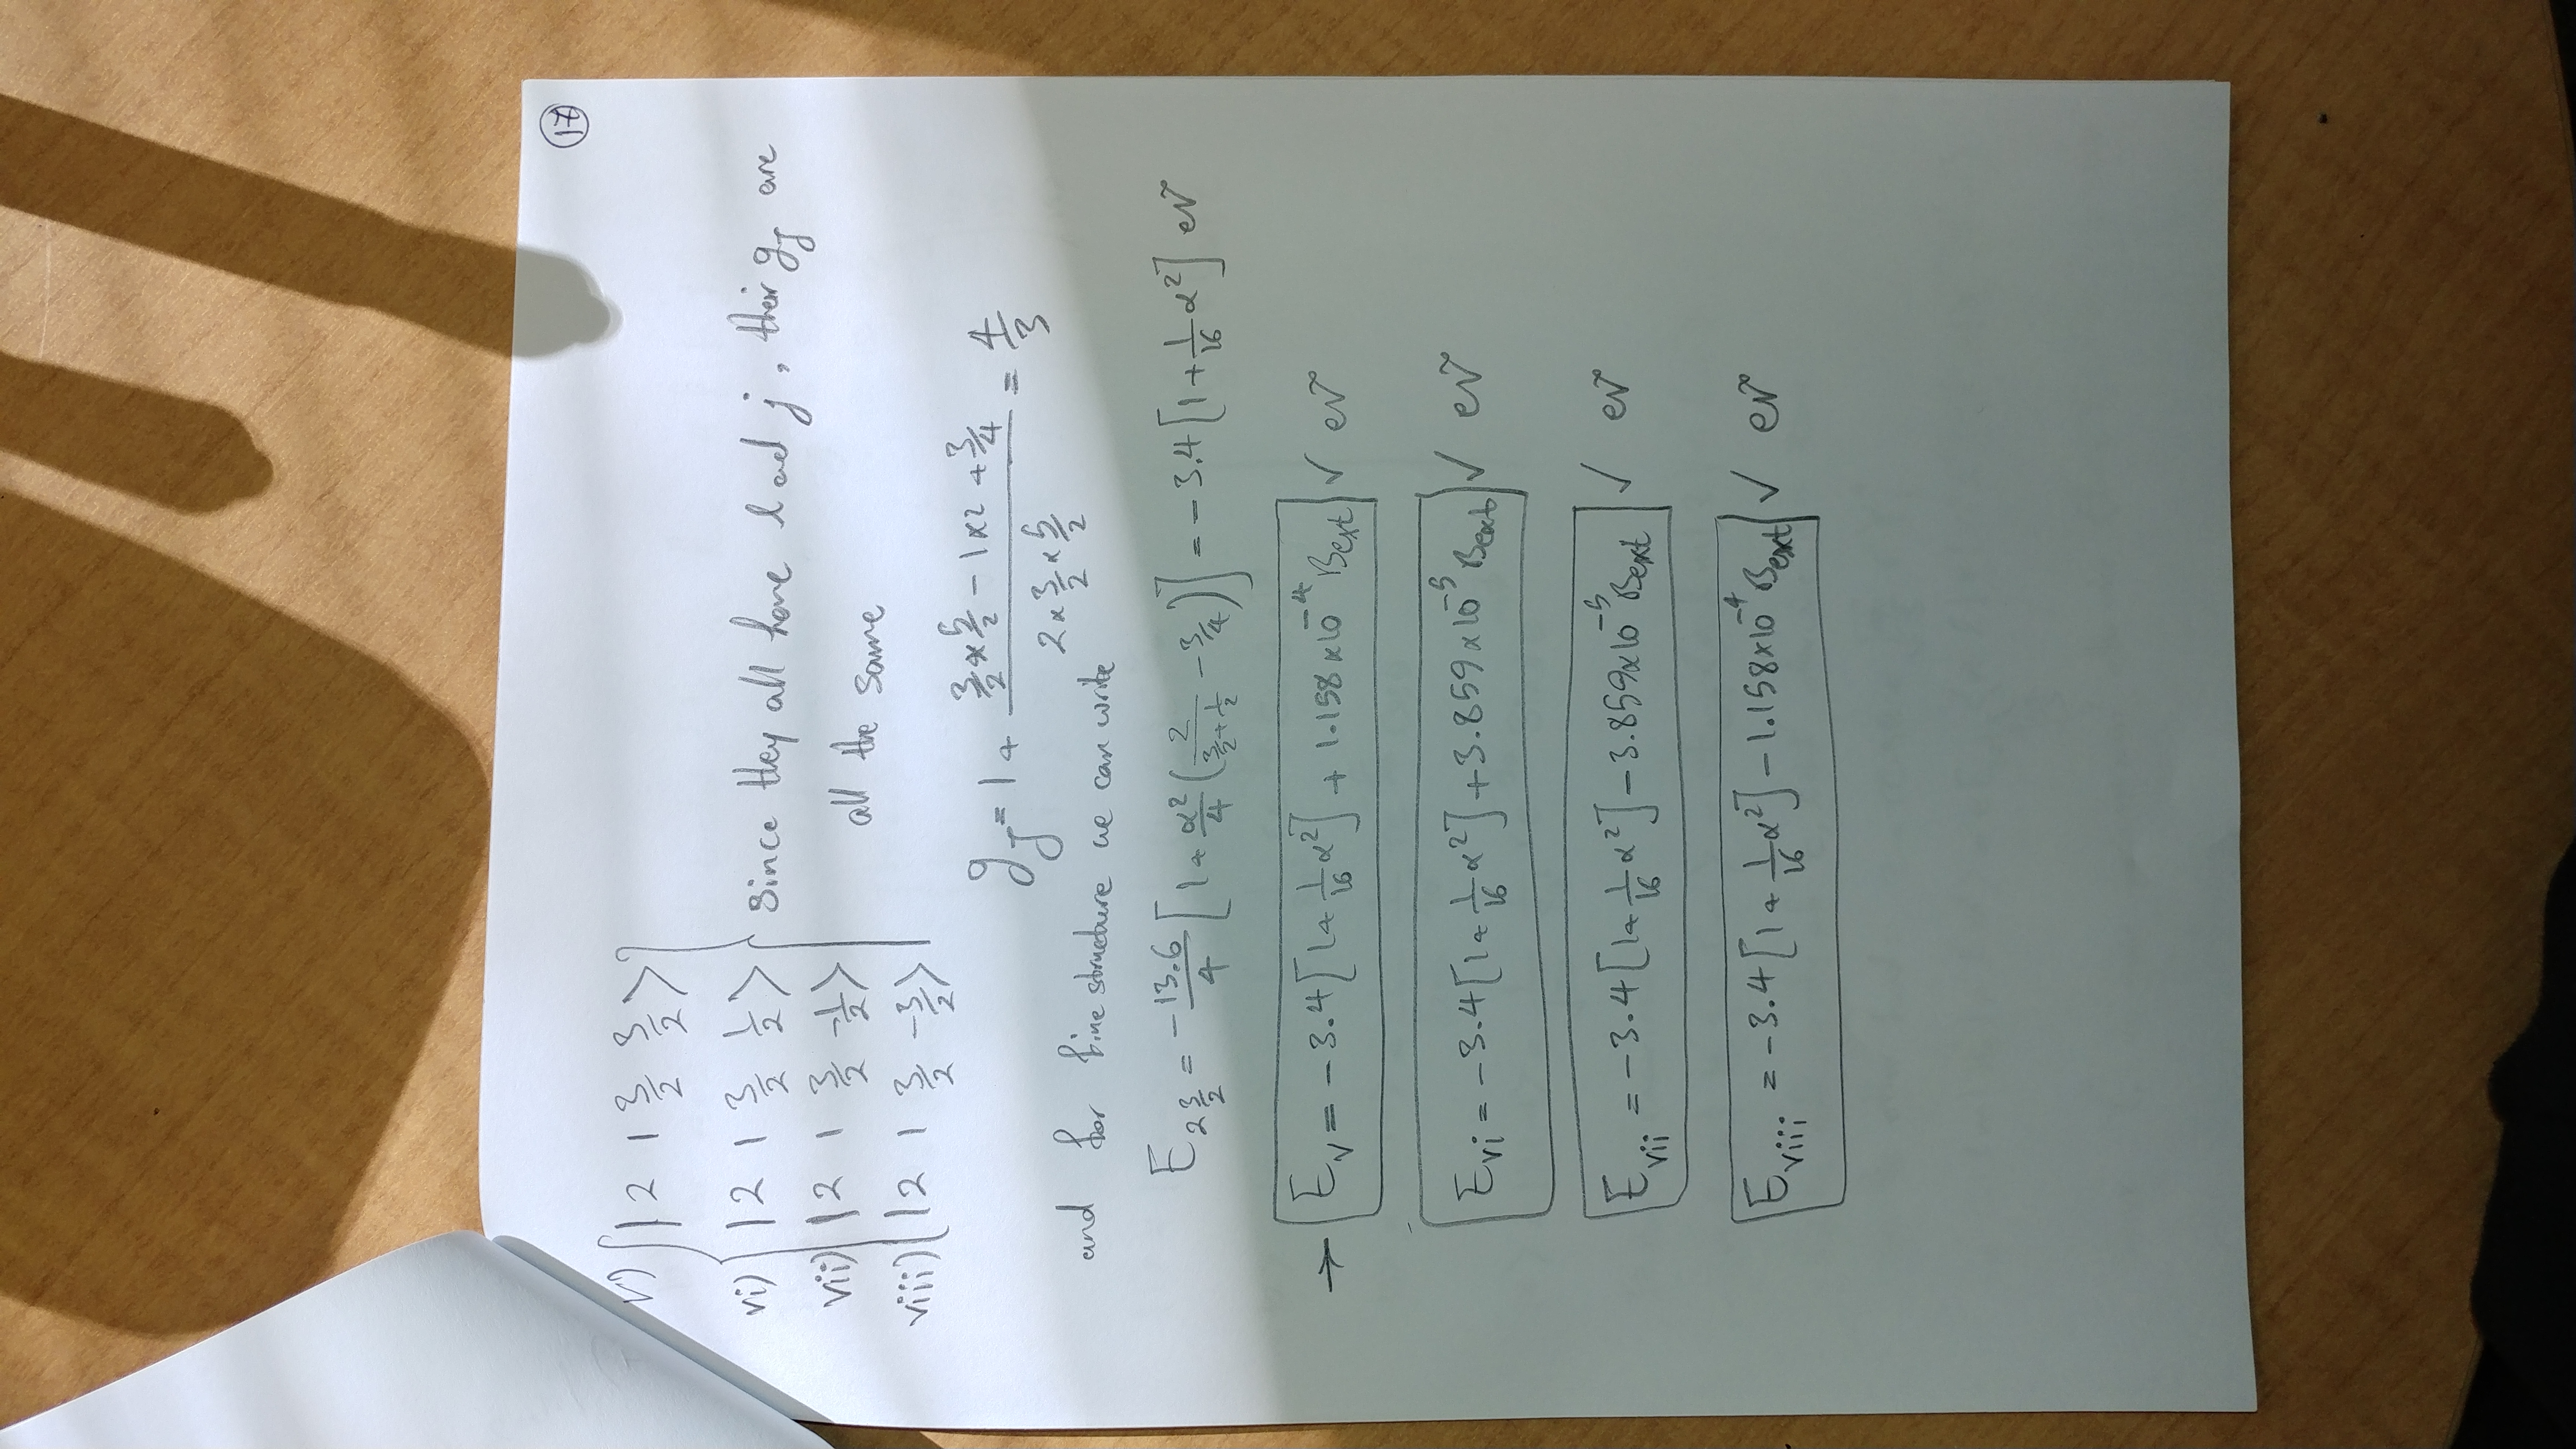 17
v) |2 1 3/2 3/2>
vi) |2 1 3/2 1/2> since they all have l and j, their g_J are
vii) |2 1 3/2 -1/2> all the same
viii) |2 1 3/2 -3/2>
g_J = 1 + (3/2 × 5/2 - 1×2 + 3/4) / (2 × 3/2 × 5/2) = 4/3
and for fine structure we can write
E_{2 3/2} = -13.6/4 [1 + α²/4 (2/(3/2 + 1/2) - 3/4)] = -3.4 [1 + 1/16 α²] eV
→ E_v = -3.4 [1 + 1/16 α²] + 1.158 ×10^-4 B_ext ✓ eV
E_vi = -3.4 [1 + 1/16 α²] + 3.859 ×10^-5 B_ext ✓ eV
E_vii = -3.4 [1 + 1/16 α²] - 3.859×10^-5 B_ext ✓ eV
E_viii = -3.4 [1 + 1/16 α²] - 1.158×10^-4 B_ext ✓ eV